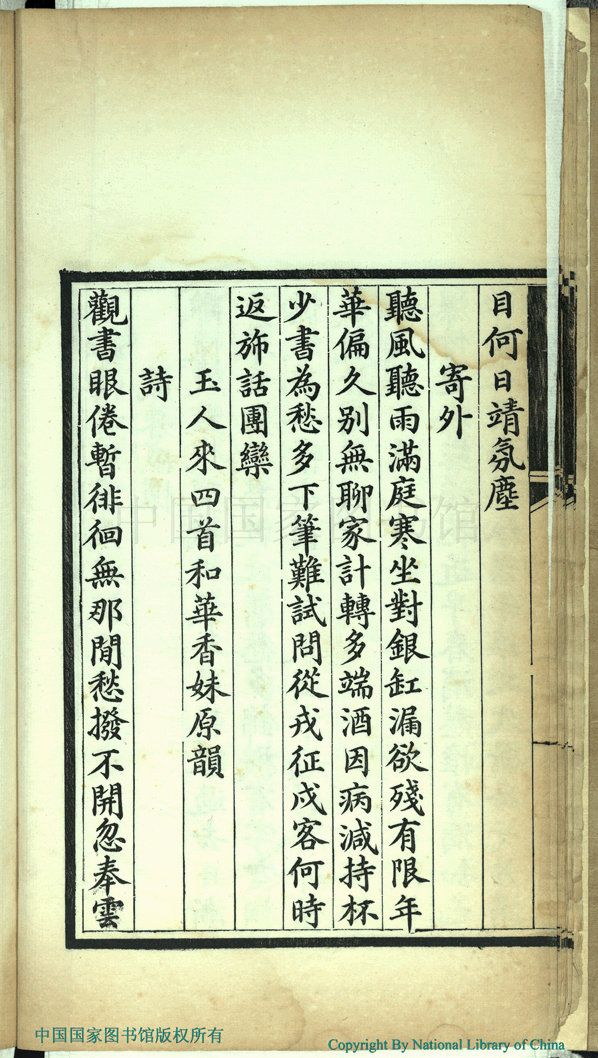 目何日靖氛塵
寄外
聽風聽雨滿庭寒坐對銀缸漏欲殘有限年
華偏久別無聊家計轉多端酒因病減持杯
少書為愁多下筆難試問從戎征戍客何時
返斾話團欒
玉人來四首和華香妹原韻
詩
觀書眼倦暫徘徊無那閒愁撥不開忽奉雲
中国国家图书馆
中国国家图书馆版权所有
Copyright By National Library of China